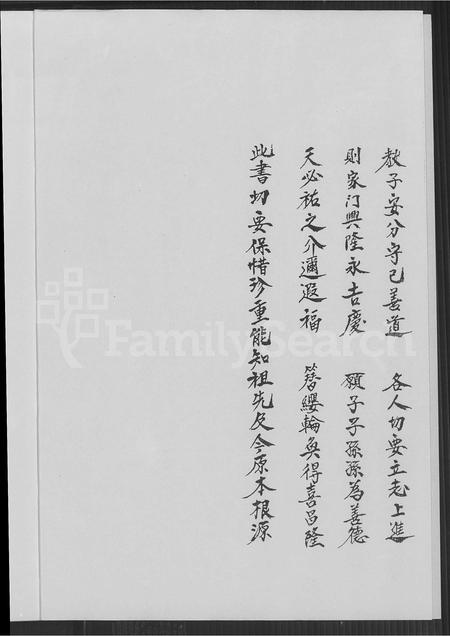 教子安分守己善道　各人切要立志上進
則家门興隆永吉慶　願子子孫孫為善德
天必祐之介邇遐福　簪纓輪奐得喜呂隆
此書切要保惜珍重能知祖先及今原本根源
FamilySearch